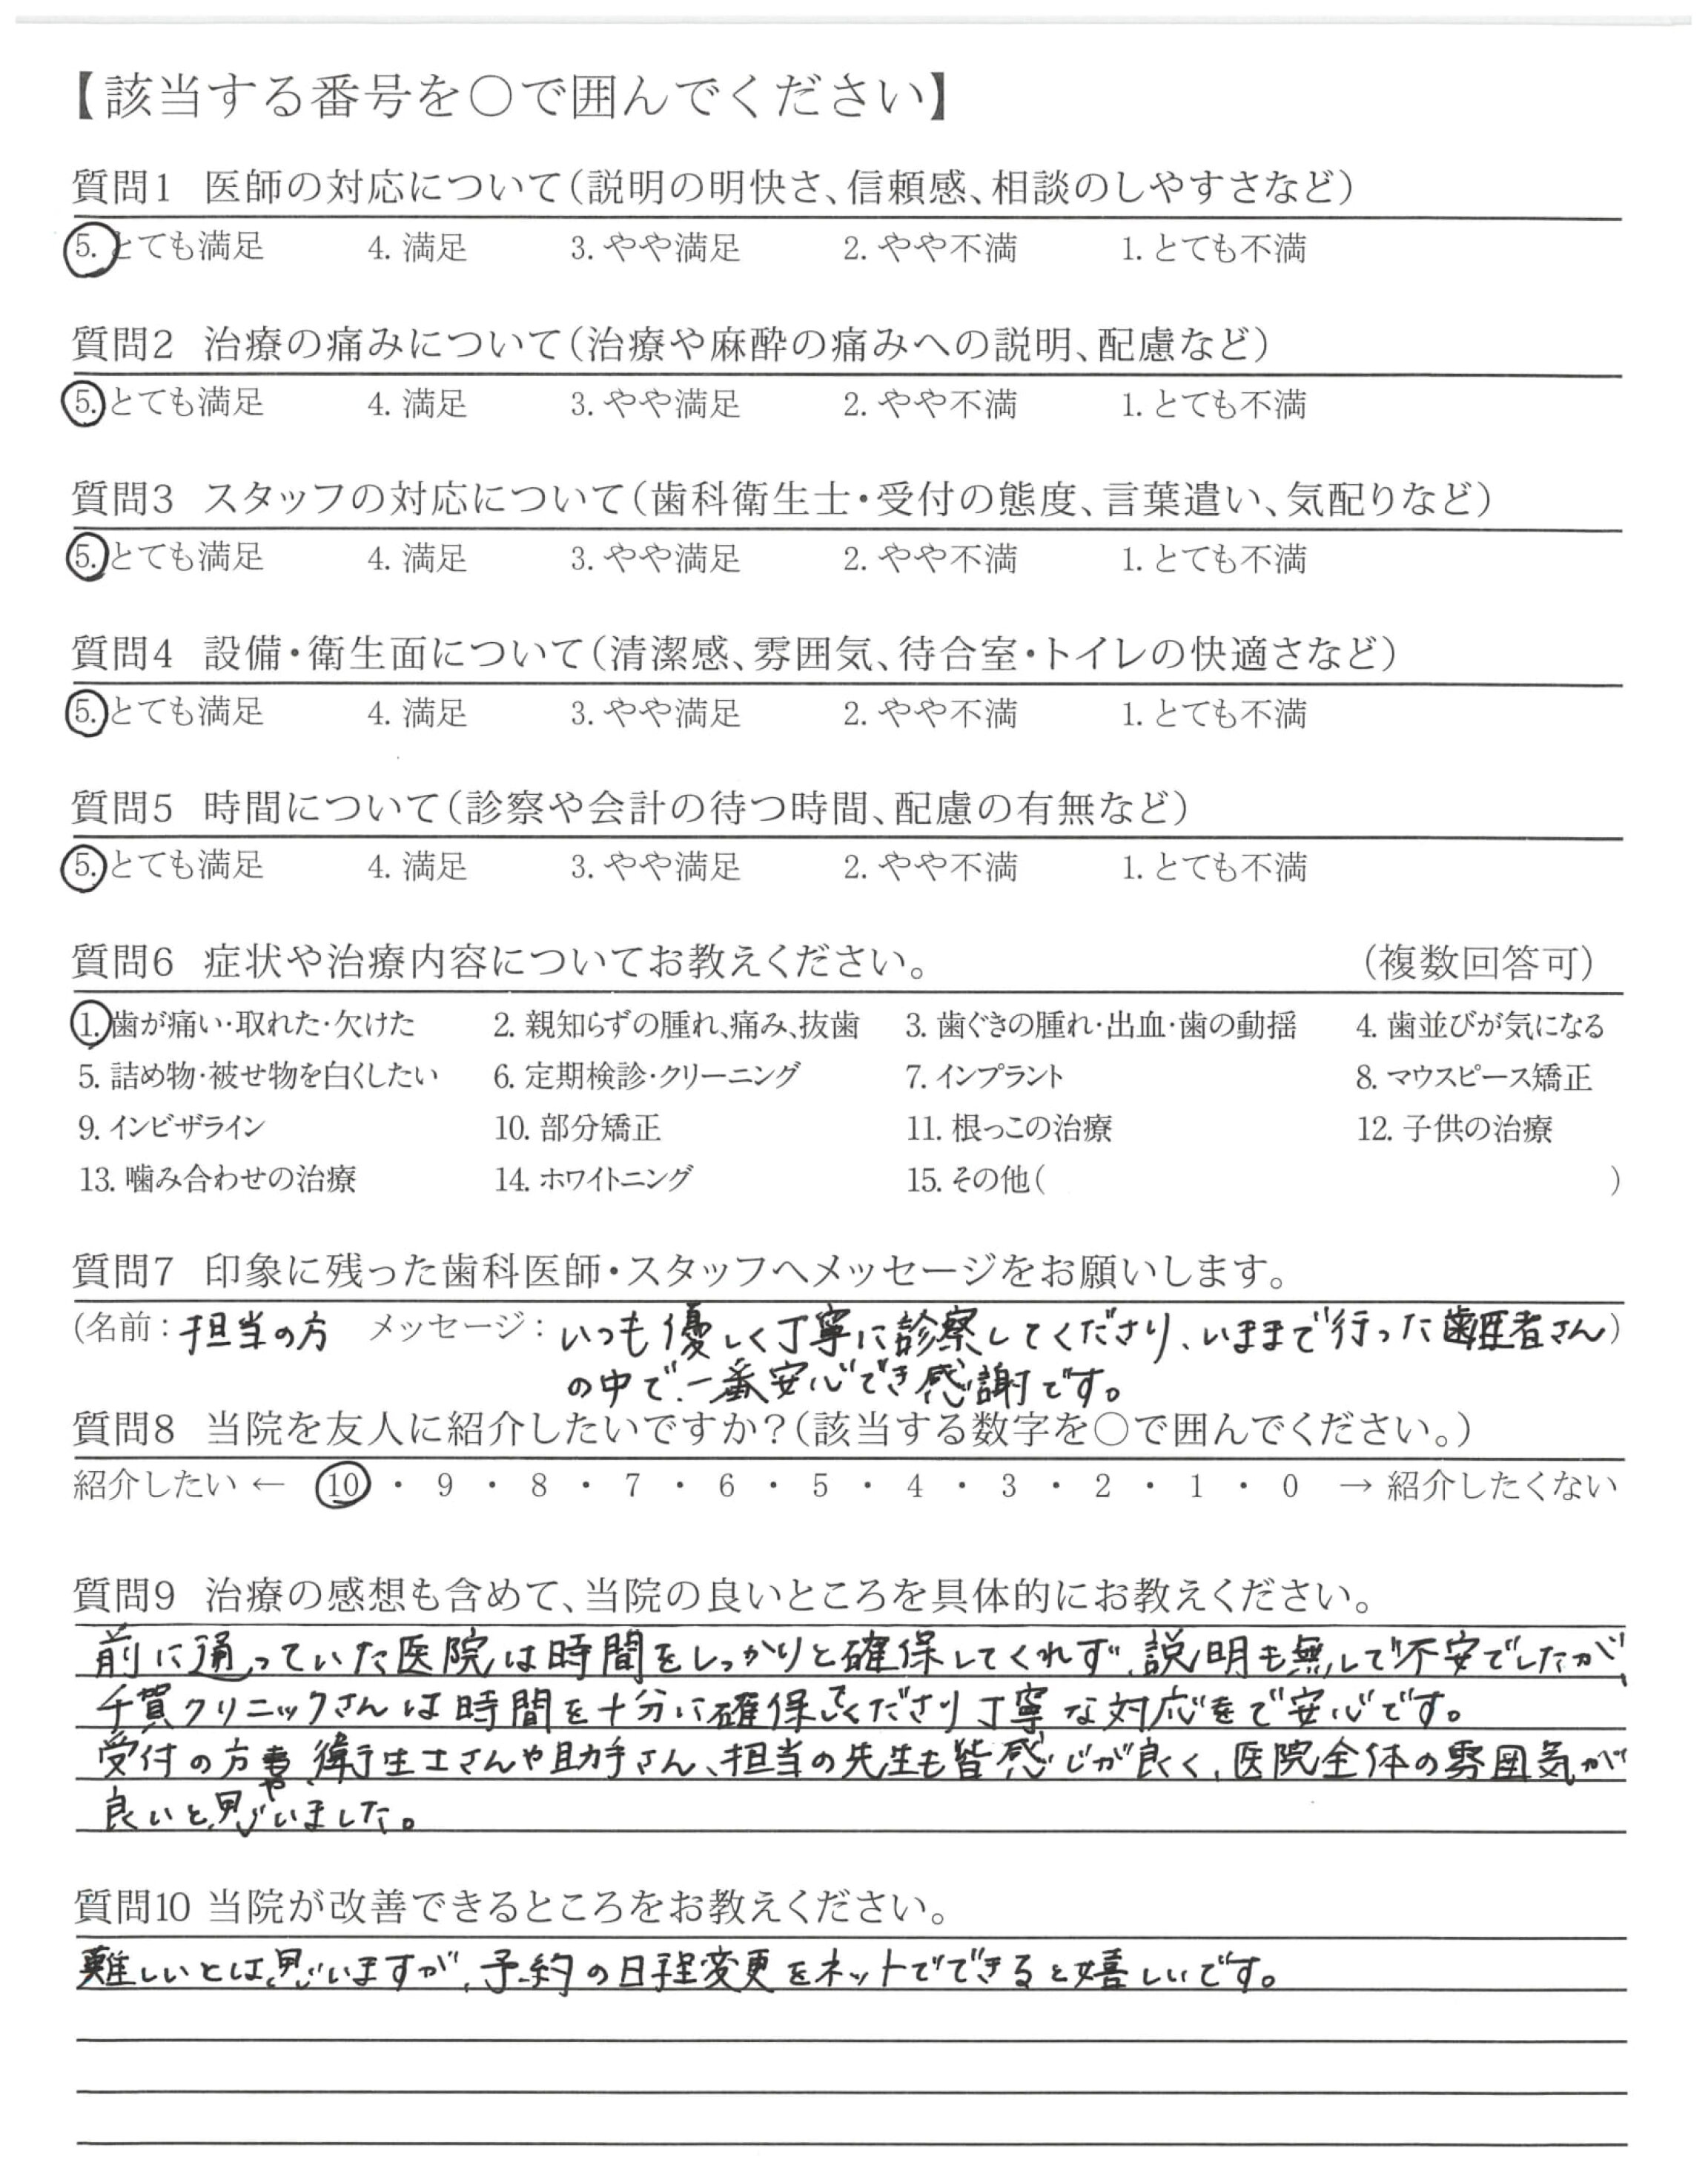 【該当する番号を○で囲んでください】
質問1 医師の対応について（説明の明快さ、信頼感、相談のしやすさなど）
5. とても満足 4. 満足 3. やや満足 2. やや不満 1. とても不満
質問2 治療の痛みについて（治療や麻酔の痛みへの説明、配慮など）
5. とても満足 4. 満足 3. やや満足 2. やや不満 1. とても不満
質問3 スタッフの対応について（歯科衛生士・受付の態度、言葉遣い、気配りなど）
5. とても満足 4. 満足 3. やや満足 2. やや不満 1. とても不満
質問4 設備・衛生面について（清潔感、雰囲気、待合室・トイレの快適さなど）
5. とても満足 4. 満足 3. やや満足 2. やや不満 1. とても不満
質問5 時間について（診察や会計の待つ時間、配慮の有無など）
5. とても満足 4. 満足 3. やや満足 2. やや不満 1. とても不満
質問6 症状や治療内容についてお教えください。 （複数回答可）
1. 歯が痛い・取れた・欠けた 2. 親知らずの腫れ、痛み、抜歯 3. 歯ぐきの腫れ・出血・歯の動揺 4. 歯並びが気になる
5. 詰め物・被せ物を白くしたい 6. 定期検診・クリーニング 7. インプラント 8. マウスピース矯正
9. インビザライン 10. 部分矯正 11. 根っこの治療 12. 子供の治療
13. 噛み合わせの治療 14. ホワイトニング 15. その他（ ）
質問7 印象に残った歯科医師・スタッフへメッセージをお願いします。
（名前：担当の方 メッセージ：いつも優しく丁寧に診察してくださり、いままで行った歯医者さん）
の中で、一番安心でき感謝です。
質問8 当院を友人に紹介したいですか？（該当する数字を○で囲んでください。）
紹介したい ← 10 ・ 9 ・ 8 ・ 7 ・ 6 ・ 5 ・ 4 ・ 3 ・ 2 ・ 1 ・ 0 → 紹介したくない
質問9 治療の感想も含めて、当院の良いところを具体的にお教えください。
前に通っていた医院は時間をしっかりと確保してくれず、説明も無しで不安でしたが、
千賀クリニックさんは時間を十分に確保してくださり丁寧な対応で安心です。
受付の方や、衛生士さんや助手さん、担当の先生も皆感じが良く、医院全体の雰囲気が
良いと思いました。
質問10 当院が改善できるところをお教えください。
難しいとは思いますが、予約の日程変更をネットでできると嬉しいです。